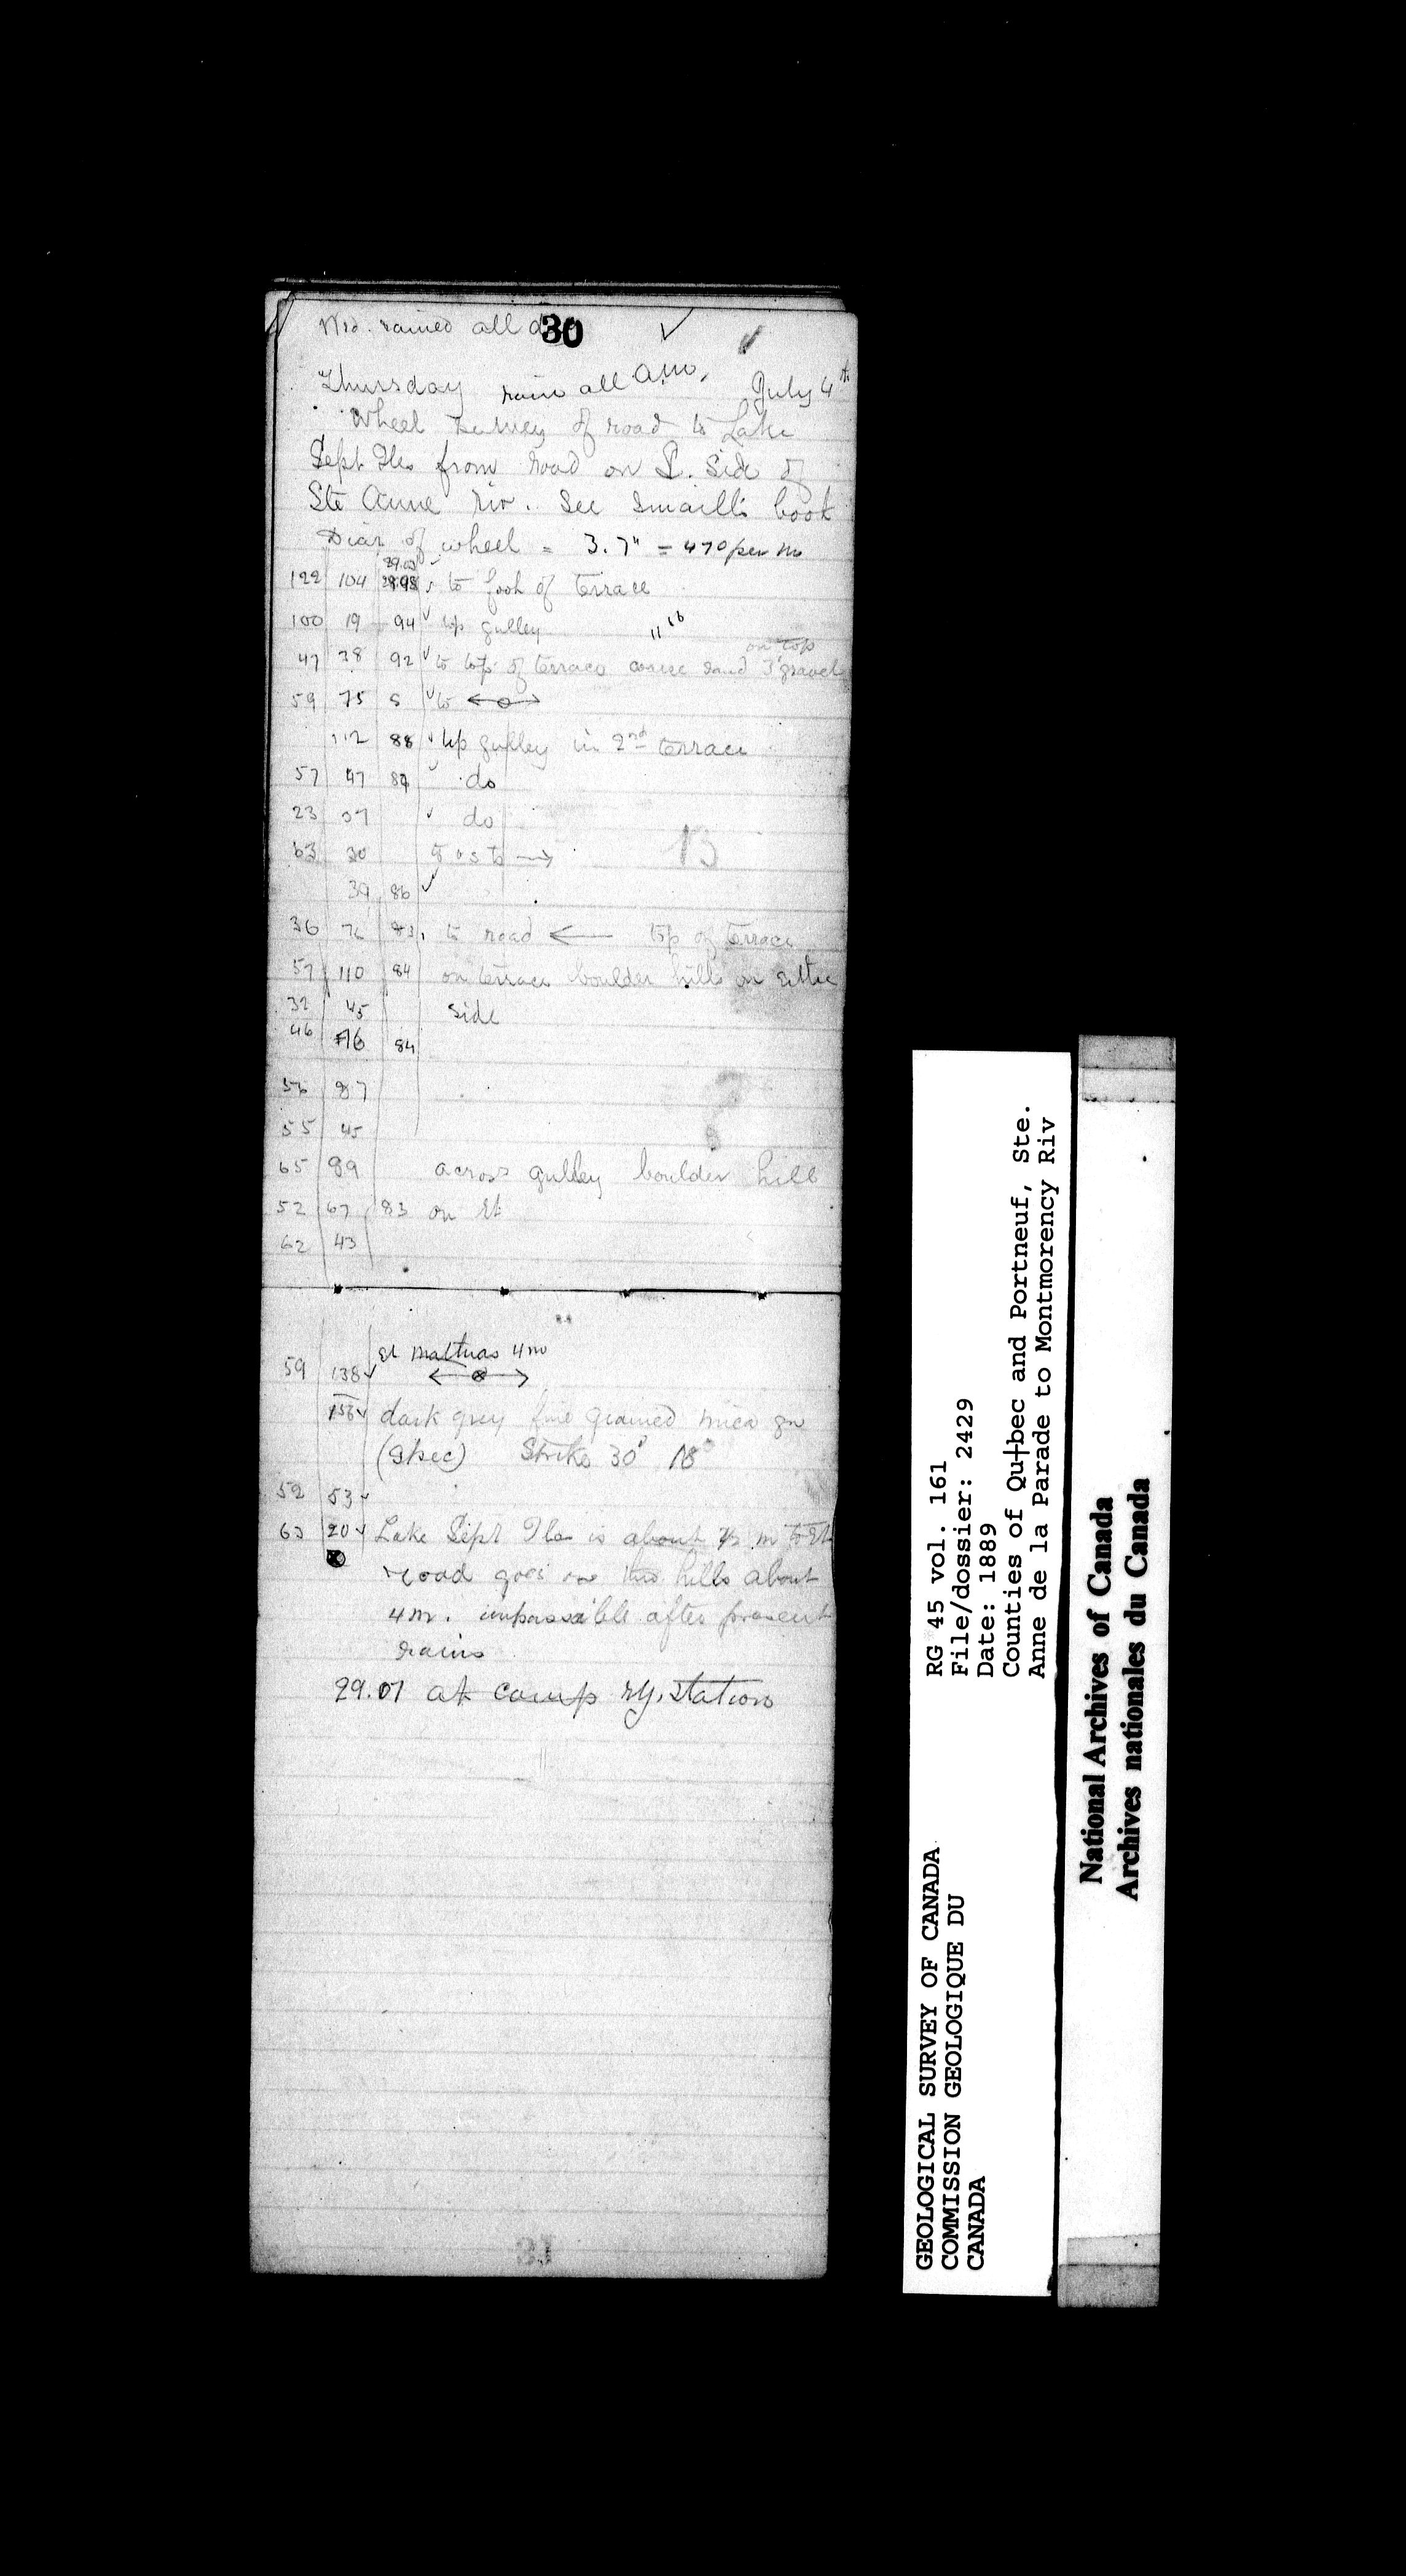 Wed. rained all d
30
Thursday rain all am. July 4th
Wheel survey of road to Lake
Sept Iles from road on S. side of
Ste Anne riv. See Smaill's book
Diar of wheel = 3.7" = 470 per m
29.00
122 104 28.98 to foot of terrace
100 19 94 up gulley
on top
47 38 92 to top of terrace coarse sand 3' gravel
59 75 S to
112 88 up gulley in 2nd terrace
57 47 do
23 37 do
63 30
39 86
36 to road top of terrace
57 110 84 on terrace boulder hills on either
32 45 side
46 84
56 87
55 45
65 89 across gulley boulder hill
52 67 83 on Et
62 43
59 138 4 m
156 dark grey fine grained mica gn
Strike 30°
52 53
63 20 Lake Sept Iles is about ½ m to Et
road goes hills about
4 m. impassible after present
rains
29.07 at camp ry. station
31
RG 45 vol. 161
File/dossier: 2429
Date: 1889
Counties of Qu†bec and Portneuf, Ste.
Anne de la Parade to Montmorency Riv
GEOLOGICAL SURVEY OF CANADA
COMMISSION GEOLOGIQUE DU
CANADA
National Archives of Canada
Archives nationales du Canada